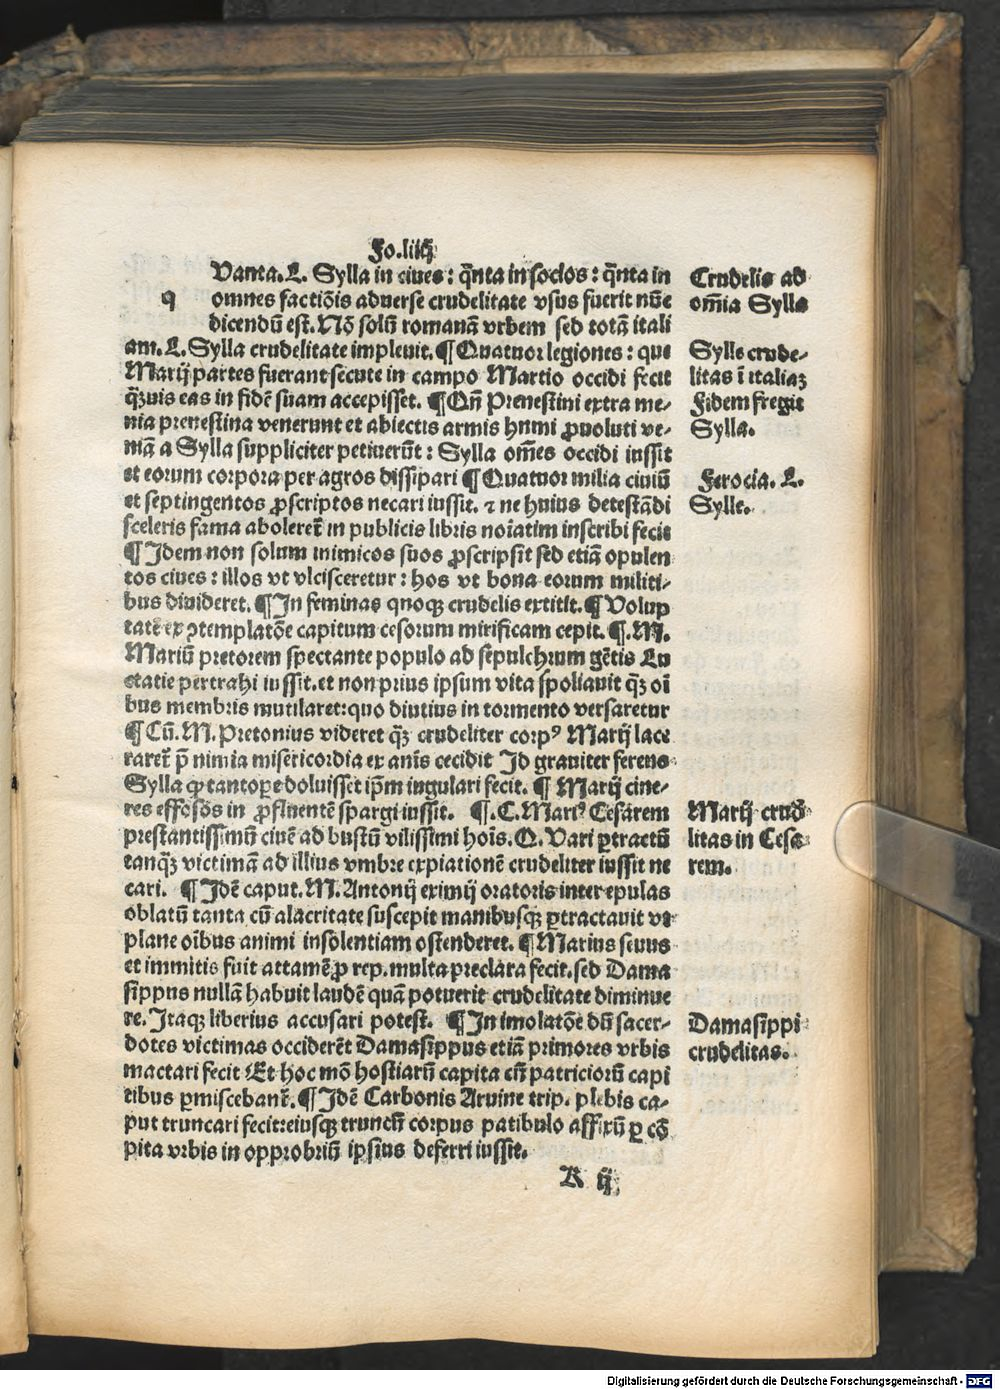 Fo.liiij
Vanta. L. Sylla in ciues: q̃nta in socios: q̃nta in
q omnes factiõis aduerse crudelitate vsus fuerit nũc
dicendũ est. Nõ solũ romanã vrbem sed totã itali
am. L. Sylla crudelitate impleuit. ¶ Quatuor legiones: que
Marij partes fuerant secute in campo Martio occidi fecit
q̃ꝫuis eas in fidẽ suam accepisset. ¶ Qñ Prenestini extra me-
nia prenestina venerunt et abiectis armis humi ꝓuoluti ve-
niã a Sylla suppliciter petiuerũt: Sylla om̃es occidi iussit
et eorum corpora per agros dissipari ¶ Quatuor milia ciuiũ
et septingentos ꝓscriptos necari iussit. ⁊ ne huius detestãdi
sceleris fama aboleret̃ in publicis libris noĩatim inscribi fecit
¶ Idem non solum inimicos suos ꝓscripsit sed etiã opulen
tos ciues: illos vt vlcisceretur: hos vt bona eorum militi-
bus diuideret. ¶ In feminas quoqꝫ crudelis extitit. ¶ Volup
tatẽ ex ꝯtemplatõe capitum cesorum mirificam cepit. ¶. M.
Mariũ pretorem spectante populo ad sepulchrum gẽtis Lu
ctatie pertrahi iussit. et non prius ipsum vita spoliauit q̃ꝫ oĩ
bus membris mutilaret: quo diutius in tormento versaretur
¶ Cũ. M. Pretonius videret q̃ꝫ crudeliter corpꝰ Marij lace
raret̃ p̃ nimia misericordia exanis cecidit Id grauiter ferens
Sylla ꝙ tantope doluisset ip̃m iugulari fecit. ¶ Marij cine-
res effosos in ꝓfluentẽ spargi iussit. ¶. C. Mariꝰ Cesarem
prestantissimũ ciuẽ ad bustũ vilissimi hoĩs. Q. Vari ꝑtractũ
tanq̃ꝫ victimã ad illius vmbre expiationẽ crudeliter iussit ne
cari. ¶ Idẽ caput. M. Antonij eximij oratoris inter epulas
oblatũ tanta cũ alacritate suscepit manibusqꝫ ꝑtractauit vt
plane oĩbus animi insolentiam ostenderet. ¶ Marius seuus
et immitis fuit attamẽ ꝓ rep. multa preclara fecit. sed Dama
sippus nullã habuit laudẽ quã potuerit crudelitate diminue
re. Itaqꝫ liberius accusari potest. ¶ In imolatõe dũ sacer-
dotes victimas occiderẽt Damasippus etiã primores vrbis
mactari fecit Et hoc mõ hostiarũ capita cũ patriciorũ capi
tibus ꝑmiscebant̃. ¶ Idẽ Carbonis Aruine trip. plebis ca-
put truncari fecit: eiusqꝫ truncũ corpus patibulo affixũ ꝑ cõ
pita vrbis in opprobriũ ipsius deferri iussit.
K ij
Crudelis ad
om̃ia Sylla
Sylle crude-
litas ĩ italiaꝫ
Fidem fregit
Sylla.
Ferocia. L.
Sylle.
Marij crudẽ
litas in Cesa
rem.
Damasippi
crudelitas.
Digitalisierung gefördert durch die Deutsche Forschungsgemeinschaft - DFG